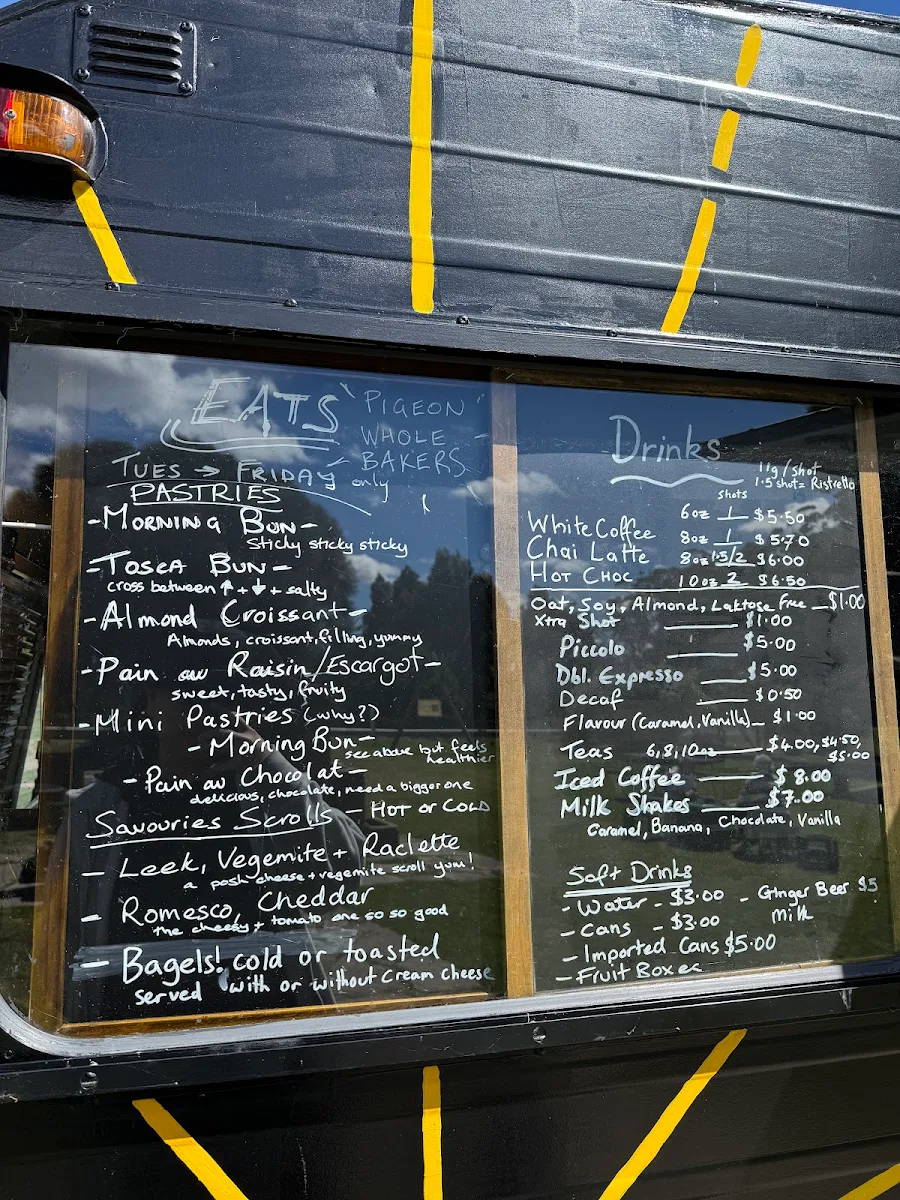 EATS
"PIGEON
WHOLE
BAKERS
TUES → FRIDAY only
PASTRIES
- MORNING BUN -
Sticky sticky sticky
- TOSCA BUN -
cross between ↑ + ↓ + salty
- Almond Croissant -
Almonds, croissant, filling, yummy
- Pain au Raisin/Escargot -
sweet, tasty, fruity
- Mini Pastries (why?)
- Morning Bun -
see above but feels
healthier
- Pain au Chocolat -
delicious, chocolate, need a bigger one
Savouries Scrolls - HOT or COLD
- Leek, Vegemite + Raclette
a posh cheese + vegemite scroll yum!
- Romesco, Cheddar
the cheesy + tomato one so so good
- Bagels! cold or toasted
served with or without cream cheese
Drinks
11g/shot
1.5 shot = Ristretto
shots
White Coffee 6oz 1 $5.50
Chai Latte 8oz 1 $5.70
HOT CHOC 8oz 1.5/2 $6.00
10oz 2 $6.50
Oat, Soy, Almond, Laktose Free _ $1.00
Xtra Shot $1.00
Piccolo $5.00
Dbl. Expresso $5.00
Decaf $0.50
Flavour (Caramel, Vanilla) _ $1.00
Teas 6,8,10oz $4.00, $4.50,
$5.00
Iced Coffee $8.00
Milk Shakes $7.00
Caramel, Banana, Chocolate, Vanilla
Soft Drinks
- Water - $3.00 - Ginger Beer $5
- Cans - $3.00 Milk
- Imported Cans $5.00
- Fruit Boxes